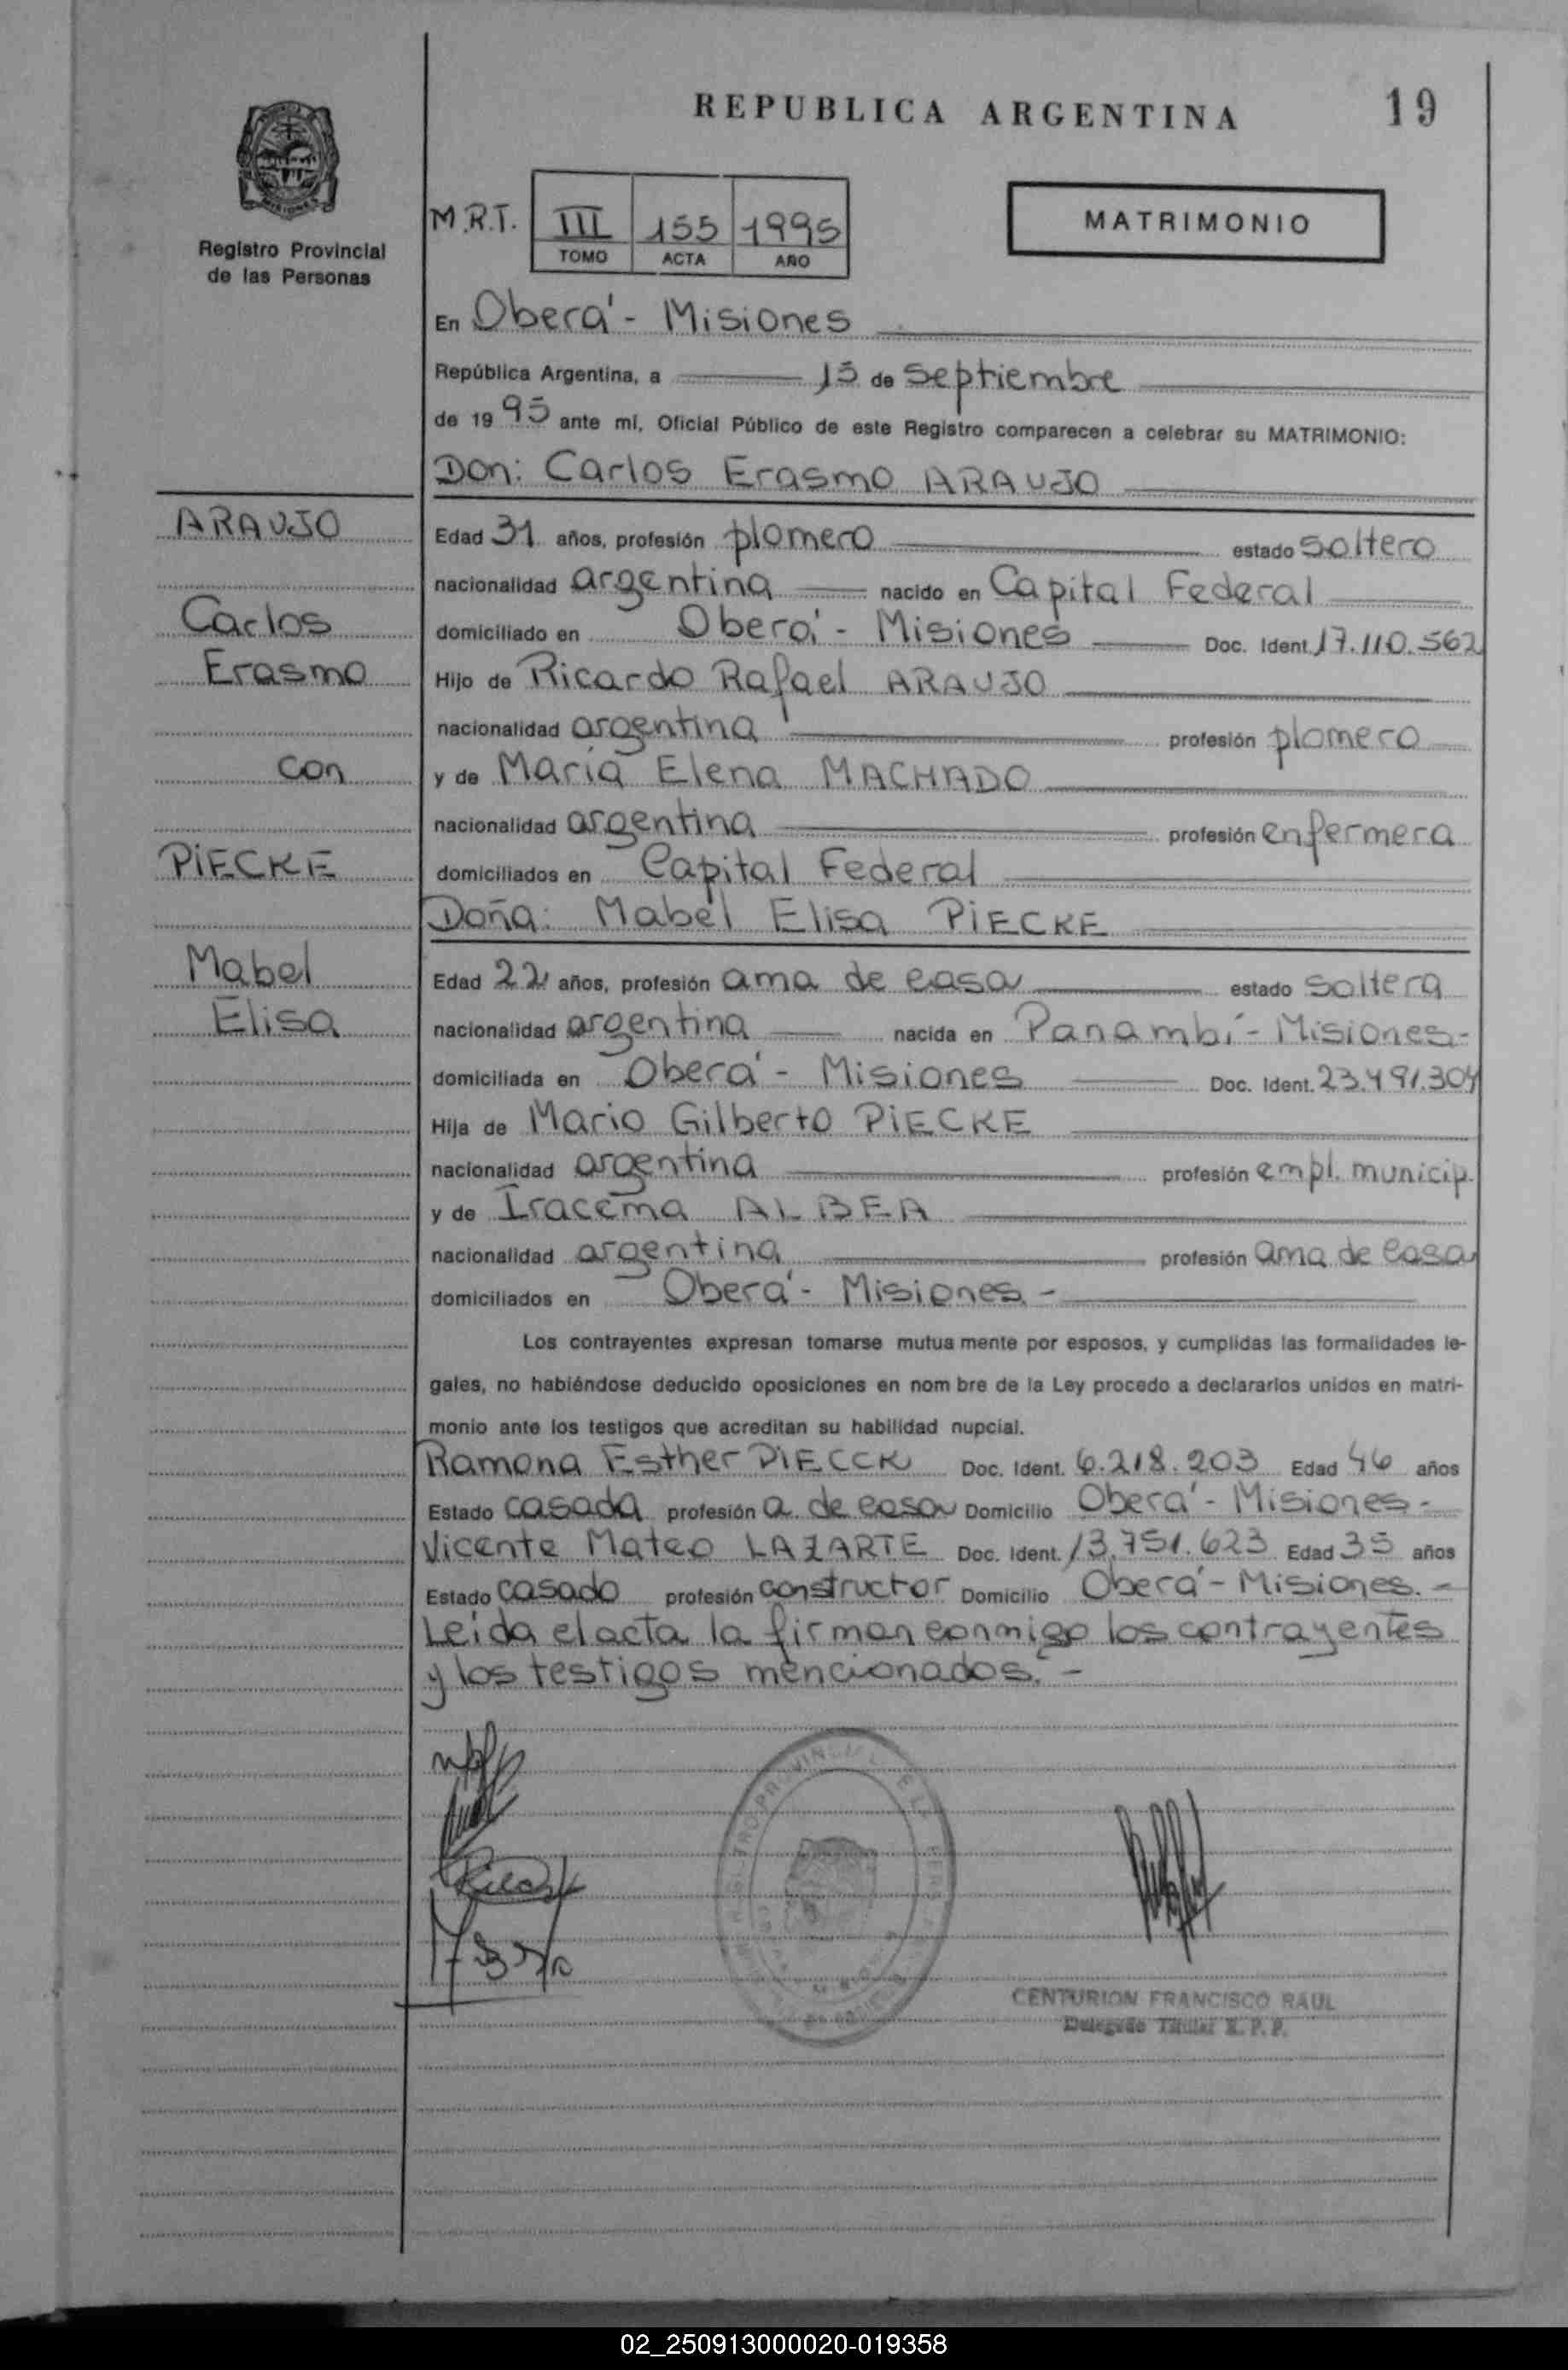 REPUBLICA ARGENTINA
19
Registro Provincial
de las Personas
M.R.T.
III 155 1995
TOMO ACTA AÑO
MATRIMONIO
En Oberá - Misiones
República Argentina, a 15 de septiembre
de 1995 ante mí, Oficial Público de este Registro comparecen a celebrar su MATRIMONIO:
Don: Carlos Erasmo ARAUJO
ARAUJO
Carlos
Erasmo
con
PIECKE
Mabel
Elisa
Edad 31 años, profesión plomero estado soltero
nacionalidad argentina nacido en Capital Federal
domiciliado en Oberá - Misiones Doc. Ident. 17.110.562
Hijo de Ricardo Rafael ARAUJO
nacionalidad argentina profesión plomero
y de María Elena MACHADO
nacionalidad argentina profesión enfermera
domiciliados en Capital Federal
Doña: Mabel Elisa PIECKE
Edad 22 años, profesión ama de casa estado soltera
nacionalidad argentina nacida en Panambí - Misiones-
domiciliada en Oberá - Misiones Doc. Ident. 23.491.304
Hija de Mario Gilberto PIECKE
nacionalidad argentina profesión empl. municip.
y de Iracema ALBEA
nacionalidad argentina profesión ama de casa
domiciliados en Oberá - Misiones -
Los contrayentes expresan tomarse mutua mente por esposos, y cumplidas las formalidades le-
gales, no habiéndose deducido oposiciones en nom bre de la Ley procedo a declararlos unidos en matri-
monio ante los testigos que acreditan su habilidad nupcial.
Ramona Esther PIECCK Doc. Ident. 6.218.203 Edad 46 años
Estado casada profesión a. de casa Domicilio Oberá - Misiones -
Vicente Mateo LAZARTE Doc. Ident. 13.751.623 Edad 35 años
Estado casado profesión constructor Domicilio Oberá - Misiones. -
Leída el acta la firman conmigo los contrayentes
y los testigos mencionados. -
CENTURION FRANCISCO RAUL
Delegado Titular R. P. P.
02_250913000020-019358